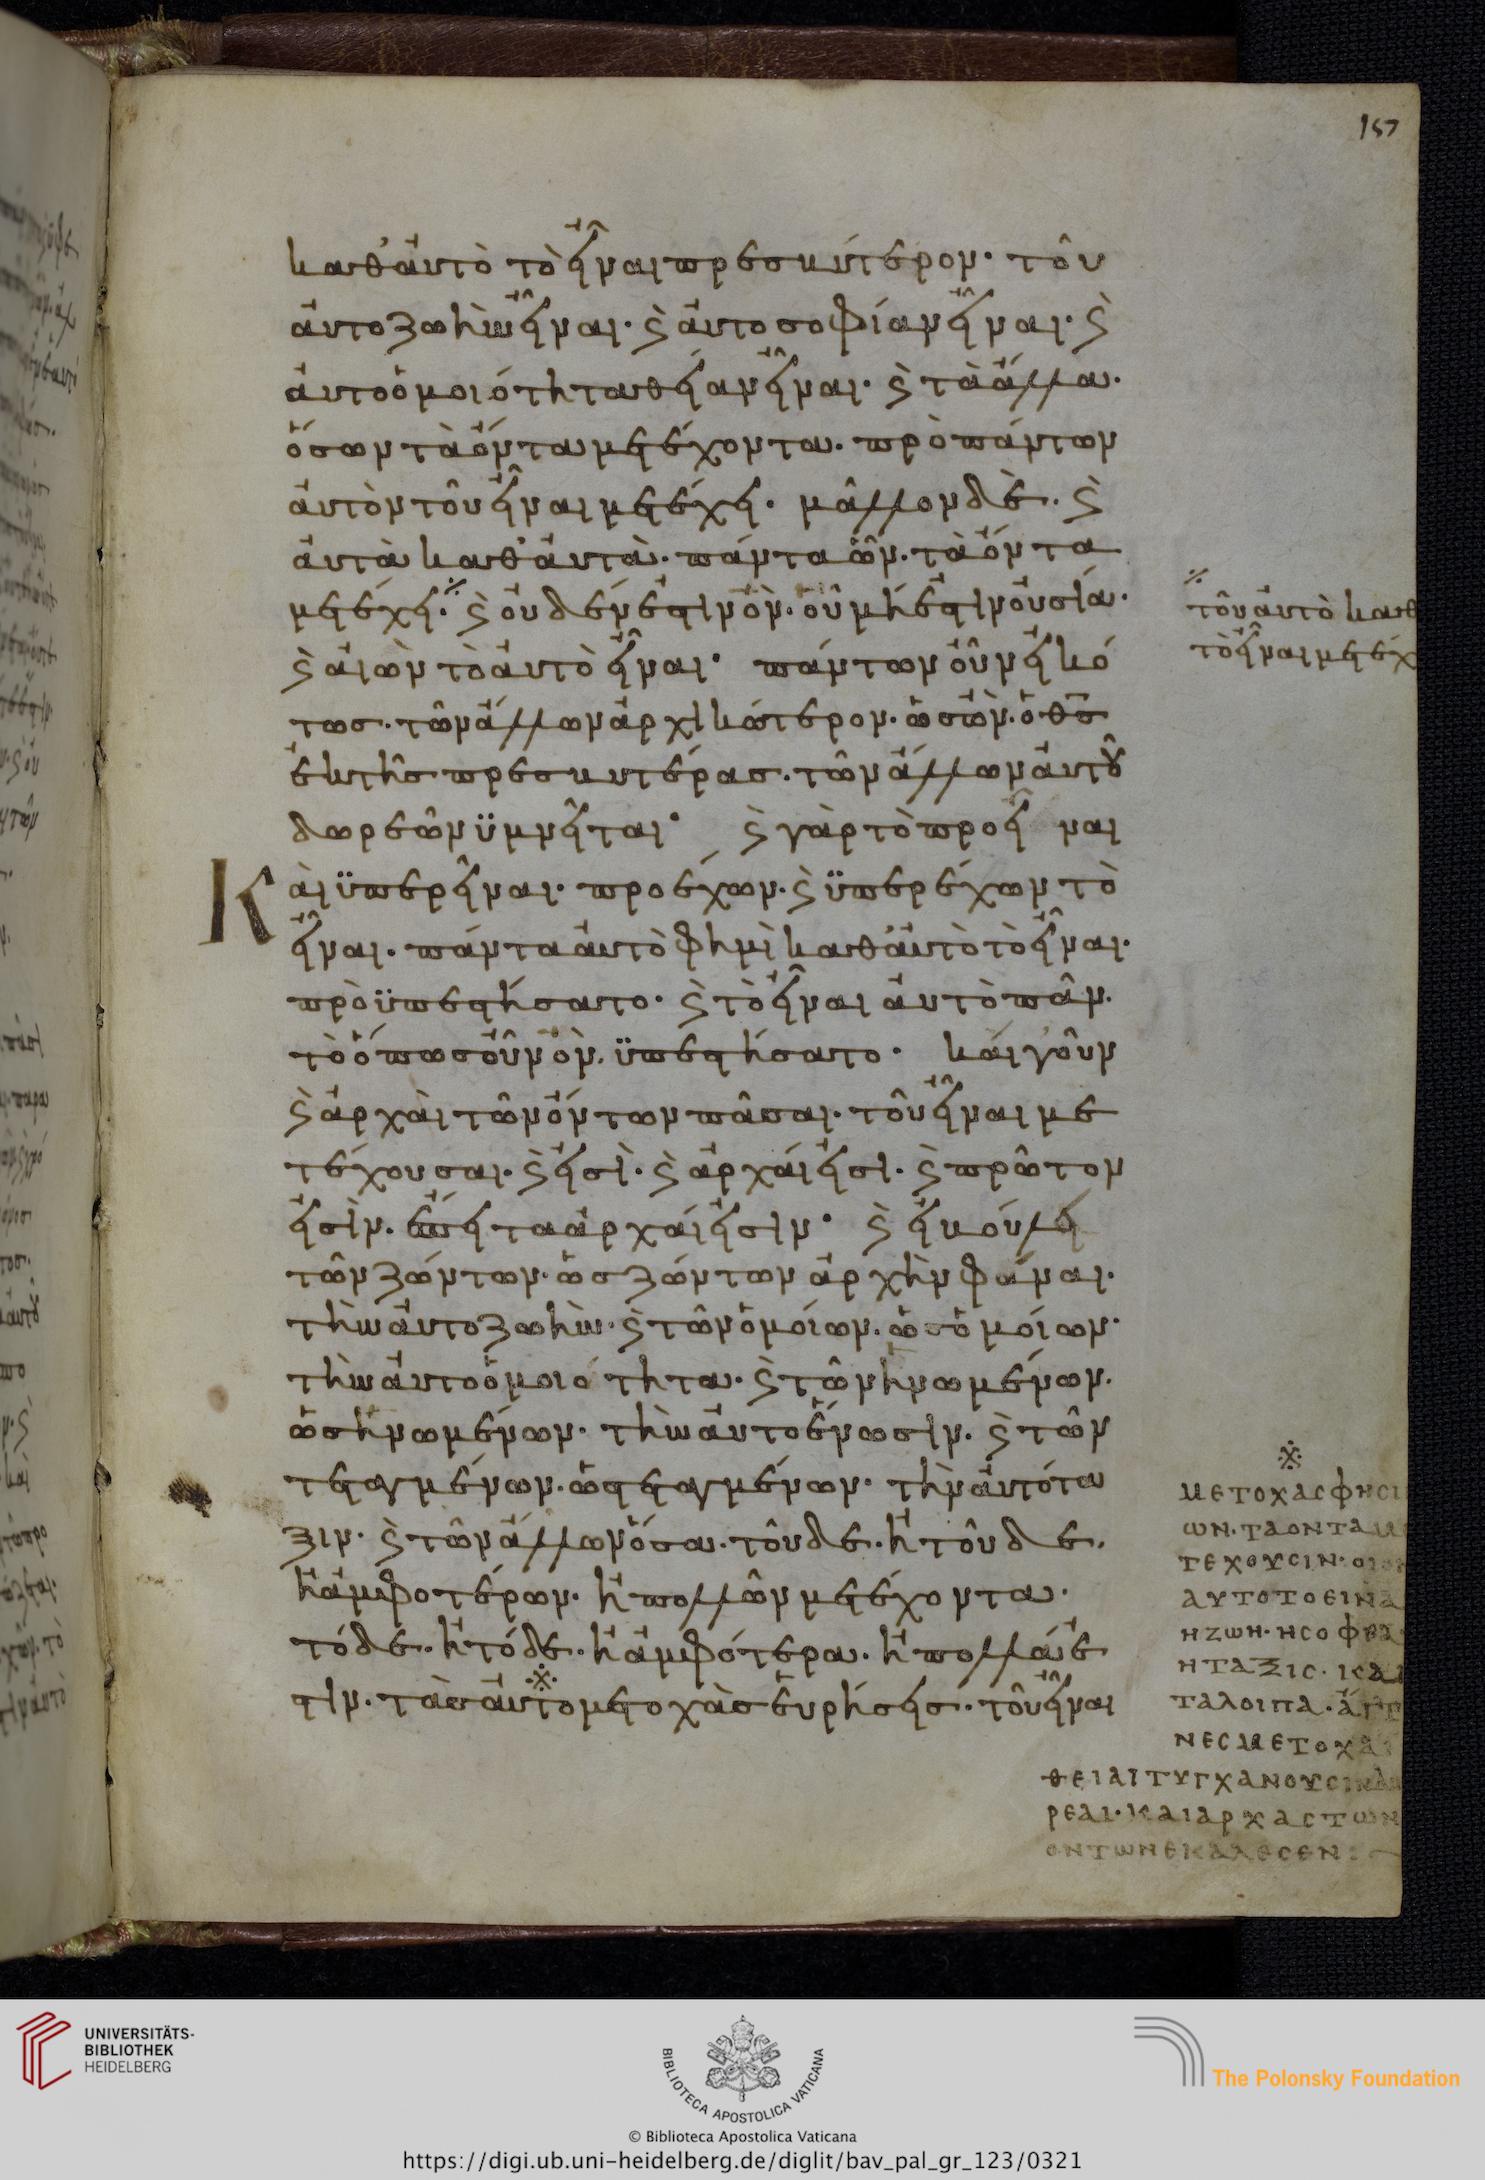 157
καθ' αὐτὸ τὸ εἶναι πρεσβύτερον· τοῦ
αὐτοζωὴν εἶναι· ϗ̀ αὐτοσοφίαν εἶναι· ϗ̀
αὐτοὁμοιότητα θείαν εἶναι· ϗ̀ τὰ ἄλλα·
ὅσων τὰ ὄντα μετέχοντα· πρὸ πάντων
αὐτὸν τοῦ εἶναι μετέχει· μᾶλλον δὲ· ϗ̀
αὐτὰ καθ' αὑτὰ· πάντα ὧν· τὰ ὄντα
μετέχει·⁒ ϗ̀ οὐδέν ἐστιν ὂν· οὗ μή ἐστιν οὐσία·
ϗ̀ αἰὼν τὸ αὐτὸ εἶναι· πάντων οὖν εἰκό
τωσ· τῶν ἄλλων ἀρχικώτερον· ὡσ ὢν· ὁ θσ
ἐκ τῆσ πρεσβυτέρασ· τῶν ἄλλων αὐτοῦ
δωρεῶν ϋμνεῖται· ϗ̀ γὰρ τὸ προεῖναι
Καὶ ϋπερεῖναι· προέχων· ϗ̀ ϋπερέχων τὸ
εἶναι· πάντα αὐτὸ φημὶ καθ' αὑτὸ τὸ εἶναι·
πρὸϋπεστήσατο· ϗ̀ τὸ εἶναι αὐτὸ πᾶν·
τὸ ὅπωσοῦν ὂν· ϋπεστήσατο· κάι γοῦν
ϗ̀ ἀρχὰι τῶν ὄντων πᾶσαι· τοῦ εἶναι με
τέχουσαι· ϗ̀ εἰσὶ· ϗ̀ ἀρχάι εἰσι· ϗ̀ πρῶτον
εἰσὶν· ἔπειτα ἀρχάι εἰσιν· ϗ̀ εἰ βούλει
τῶν ζώντων· ὡσ ζώντων ἀρχὴν φάναι·
τὴν αὐτοζωὴν· ϗ̀ τῶν ὁμοίων· ὡσ ὁμοίων·
τὴν αὐτοὁμοιότητα· ϗ̀ τῶν ἡνωμένων·
ὡσ ἡνωμένων· τὴν αὐτοένωσιν· ϗ̀ τῶν
τεταγμένων· ὡσ τεταγμένων· τὴν αὐτότα
ξιν· ϗ̀ τῶν ἄλλων ὅσα· τοῦδε· ἢ τοῦδε·
ἢ ἀμφοτέρων· ἢ πολλῶν μετέχοντα·
τόδε· ἢ τόδε· ἢ ἀμφότερα· ἢ πολλά ἐ
στιν· τὰσ αὐτομετοχὰσ εὑρήσεισ· τοῦ εἶναι
⁒
τοῦ αὐτὸ καθ
τὸ εἶναι μετέχ
※
ΜΕΤΟΧΑΣ ΦΗΣΙ
ΩΝ· ΤΑ ΟΝΤΑ Μ
ΤΕΧΟΥΣΙΝ· ΟΙΟΝ
ΑΥΤΟ ΤΟ ΕΙΝΑ
Η ΖΩΗ· Η ΣΟΦΙΑ
Η ΤΑΞΙΣ· ΚΑΙ
ΤΑ ΛΟΙΠΑ· ΑΙΤΙ
ΝΕΣ ΜΕΤΟΧΑΙ
ΘΕΙΑΙ ΤΥΓΧΑΝΟΥΣΙΝ ΔΩ
ΡΕΑΙ· ΚΑΙ ΑΡΧΑΣ ΤΩΝ
ΟΝΤΩΝ ΕΚΑΛΕΣΕΝ:
UNIVERSITÄTS-
BIBLIOTHEK
HEIDELBERG
BIBLIOTECA APOSTOLICA VATICANA
© Biblioteca Apostolica Vaticana
The Polonsky Foundation
https://digi.ub.uni-heidelberg.de/diglit/bav_pal_gr_123/0321